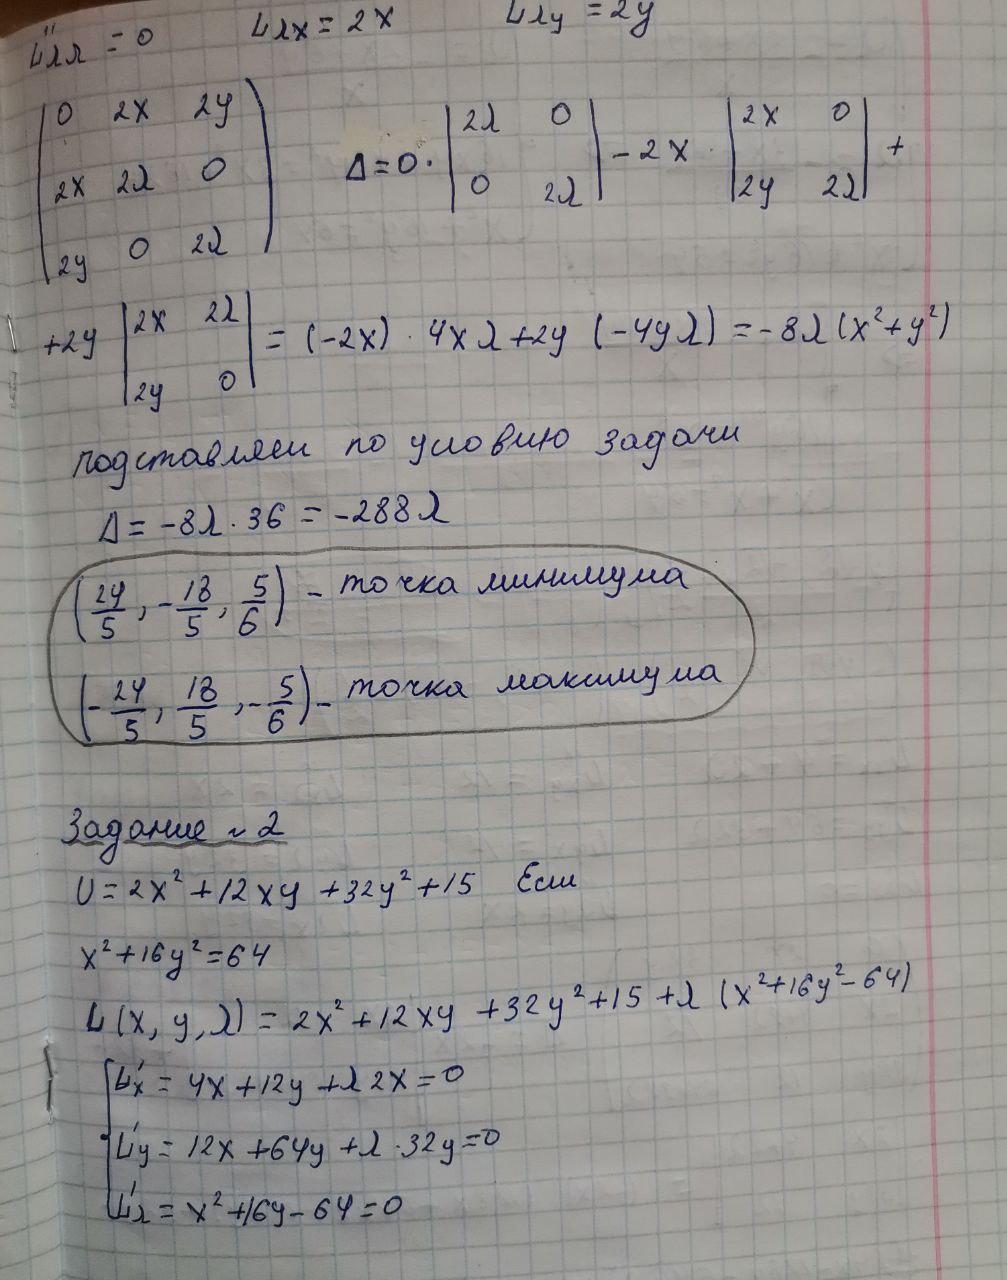 L''λλ = 0 Lλx = 2x Lλy = 2y
0 2x 2y
2x 2λ 0
2y 0 2λ
Δ = 0 · | 2λ 0 | - 2x · | 2x 0 | +
| 0 2λ | | 2y 2λ |
+2y | 2x 2λ | = (-2x) · 4xλ + 2y (-4yλ) = -8λ (x²+y²)
| 2y 0 |
подставляем по условию задачи
Δ = -8λ · 36 = -288λ
(24/5, -18/5, 5/6) - точка минимума
(-24/5, 18/5, -5/6) - точка максимума
Задание ~ 2
U = 2x² + 12xy + 32y² + 15 Если
x² + 16y² = 64
L(x, y, λ) = 2x² + 12xy + 32y² + 15 + λ (x² + 16y² - 64)
L'x = 4x + 12y + λ 2x = 0
L'y = 12x + 64y + λ · 32y = 0
L'λ = x² + 16y - 64 = 0